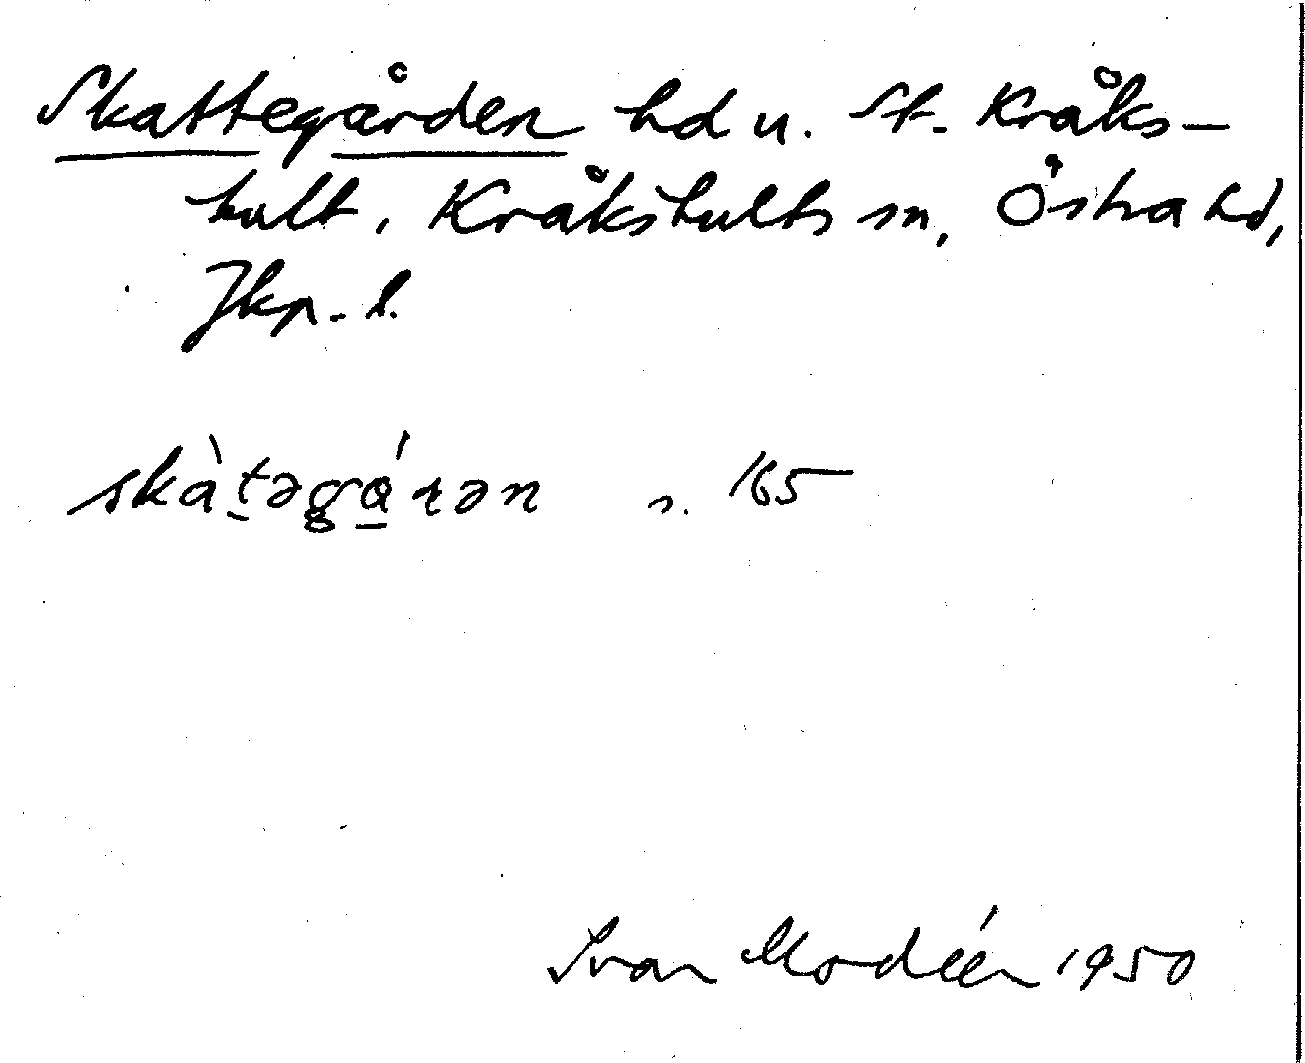 Skattegården hd u. St. Kråks-
hult, Kråkshults sn, Östra hd,
Jkp. l.
skàt̠əgá̠rən s. 165
Ivar Modéer 1950